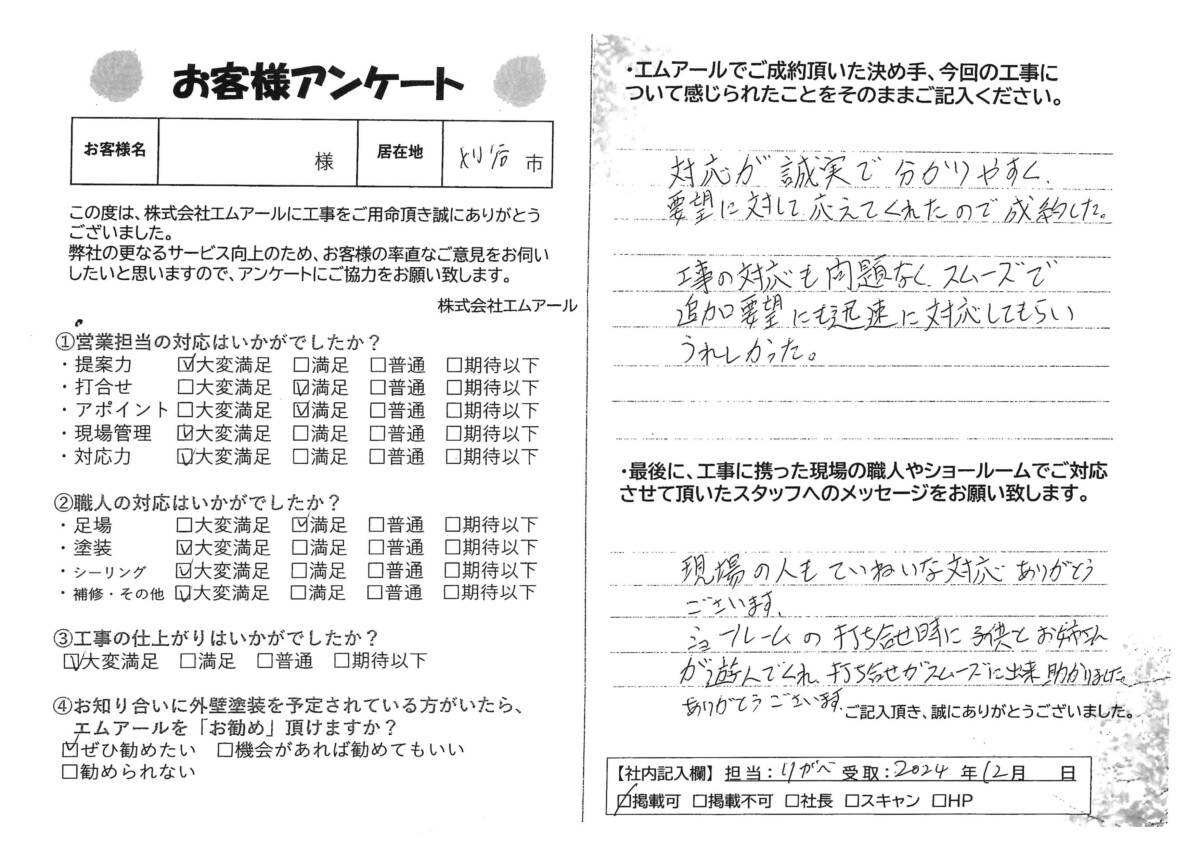 お客様アンケート
お客様名 様 居在地 刈谷 市
この度は、株式会社エムアールに工事をご用命頂き誠にありがとう
ございました。
弊社の更なるサービス向上のため、お客様の率直なご意見をお伺い
したいと思いますので、アンケートにご協力をお願い致します。
株式会社エムアール
①営業担当の対応はいかがでしたか？
・提案力 ☑大変満足 □満足 □普通 □期待以下
・打合せ □大変満足 ☑満足 □普通 □期待以下
・アポイント □大変満足 ☑満足 □普通 □期待以下
・現場管理 ☑大変満足 □満足 □普通 □期待以下
・対応力 ☑大変満足 □満足 □普通 □期待以下
②職人の対応はいかがでしたか？
・足場 □大変満足 ☑満足 □普通 □期待以下
・塗装 ☑大変満足 □満足 □普通 □期待以下
・シーリング ☑大変満足 □満足 □普通 □期待以下
・補修・その他 ☑大変満足 □満足 □普通 □期待以下
③工事の仕上がりはいかがでしたか？
☑大変満足 □満足 □普通 □期待以下
④お知り合いに外壁塗装を予定されている方がいたら、
エムアールを「お勧め」頂けますか？
☑ぜひ勧めたい □機会があれば勧めてもいい
□勧められない
・エムアールでご成約頂いた決め手、今回の工事に
ついて感じられたことをそのままご記入ください。
対応が誠実で分かりやすく、
要望に対して応えてくれたので成約した。
工事の対応も問題なく、スムーズで
追加要望にも迅速に対応してもらい
うれしかった。
・最後に、工事に携った現場の職人やショールームでご対応
させて頂いたスタッフへのメッセージをお願い致します。
現場の人もていねいな対応ありがとう
ございます。
ショールームの打ち合せ時に子供とお姉さん
が遊んでくれ、打ち合せがスムーズに出来助かりました。
ありがとうございます。
ご記入頂き、誠にありがとうございました。
【社内記入欄】 担当：りがべ 受取：2024 年 12月 日
☑掲載可 □掲載不可 □社長 □スキャン □HP